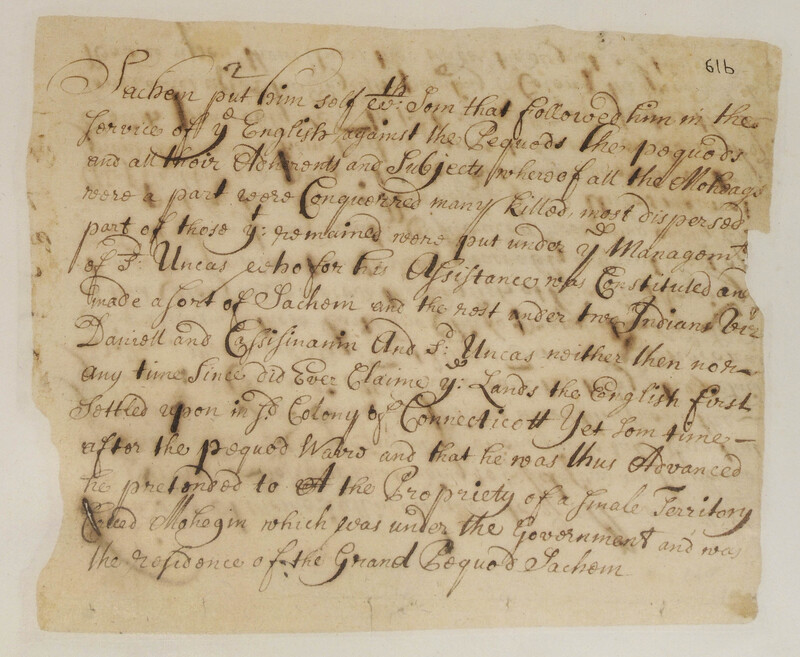 61b
2
Sachem put him self wth: Som that followed him in the
Service off ye English against the Pequods the pequods
and all their Adherents and Subjects whereof all the Moheags
were a part were Conquerred many killed, most dispersed
part of those yt: remained were put under ye Managemt
of sd: Uncas who for his Assistance was Constituted and
made a sort of Sachem and the rest under two Indians viz
Daniell and Cassisinamin And sd: Uncas neither then nor
any time Since did Ever Claime ye: Lands the English first
Settled upon in sd Colony of Connecticott Yet som time
after the pequod Warrs and that he was thus Advanced
he pretended to the Propriety of a smale Territory
Called Mohegin which was under the Government and was
the residence of the Grand Pequod Sachem